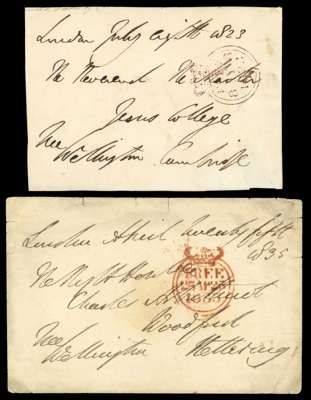 London July eighth 1823
The Reverend The Master
Jesus College
Free
Wellington Cambridge
London April Twenty fifth
1835
The Rt Honble
Charles Arbuthnot
Woodford
Free
Wellington Kettering
FREE
1835